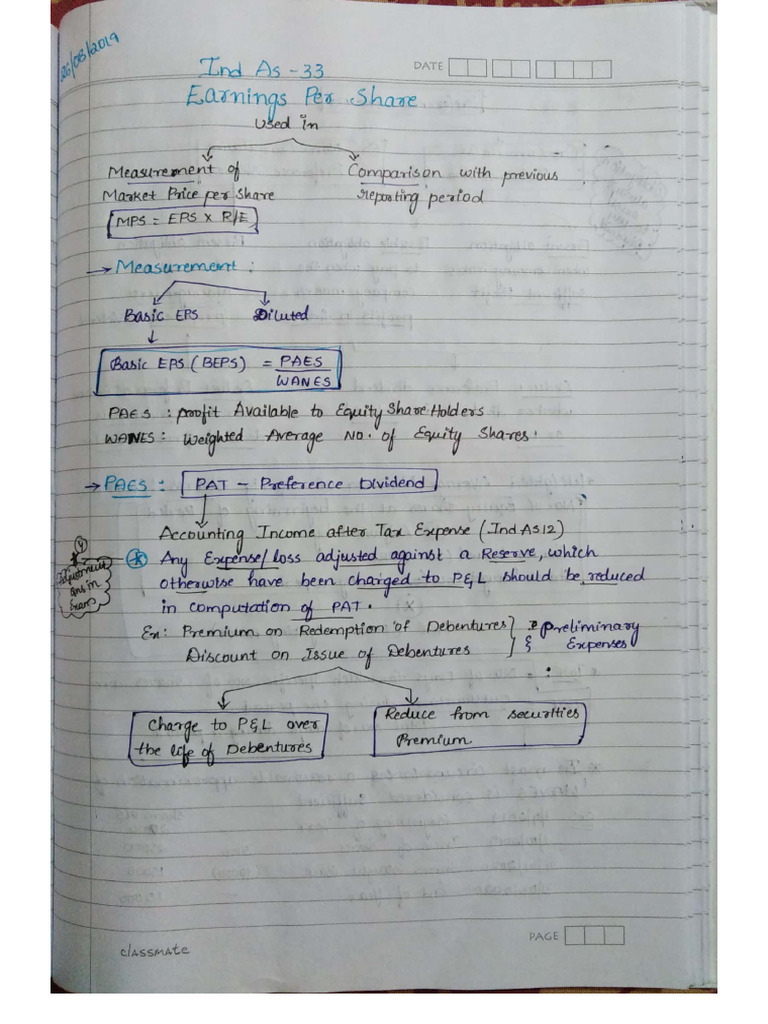 26/08/2019
Ind As - 33
DATE
Earnings Per Share
Used in
Measurement of
Market Price per share
MPS = EPS x P/E
Comparison with previous
Reporting period
→ Measurement :
Basic EPS
Diluted
Basic EPS (BEPS) = PAES
WANES
PAES : Profit Available to Equity Share Holders
WANES : Weighted Average No. of Equity Shares.
→ PAES : PAT - Preference Dividend
Accounting Income after Tax Expense (Ind AS12)
(*) Any Expense/loss adjusted against a Reserve, which
otherwise have been charged to P&L should be reduced
in computation of PAT.
Adjustment
in
Exam
Ex: Premium on Redemption of Debentures
Discount on Issue of Debentures
& Preliminary
Expenses
Charge to P&L over
the life of Debentures
Reduce from securities
Premium
PAGE
classmate